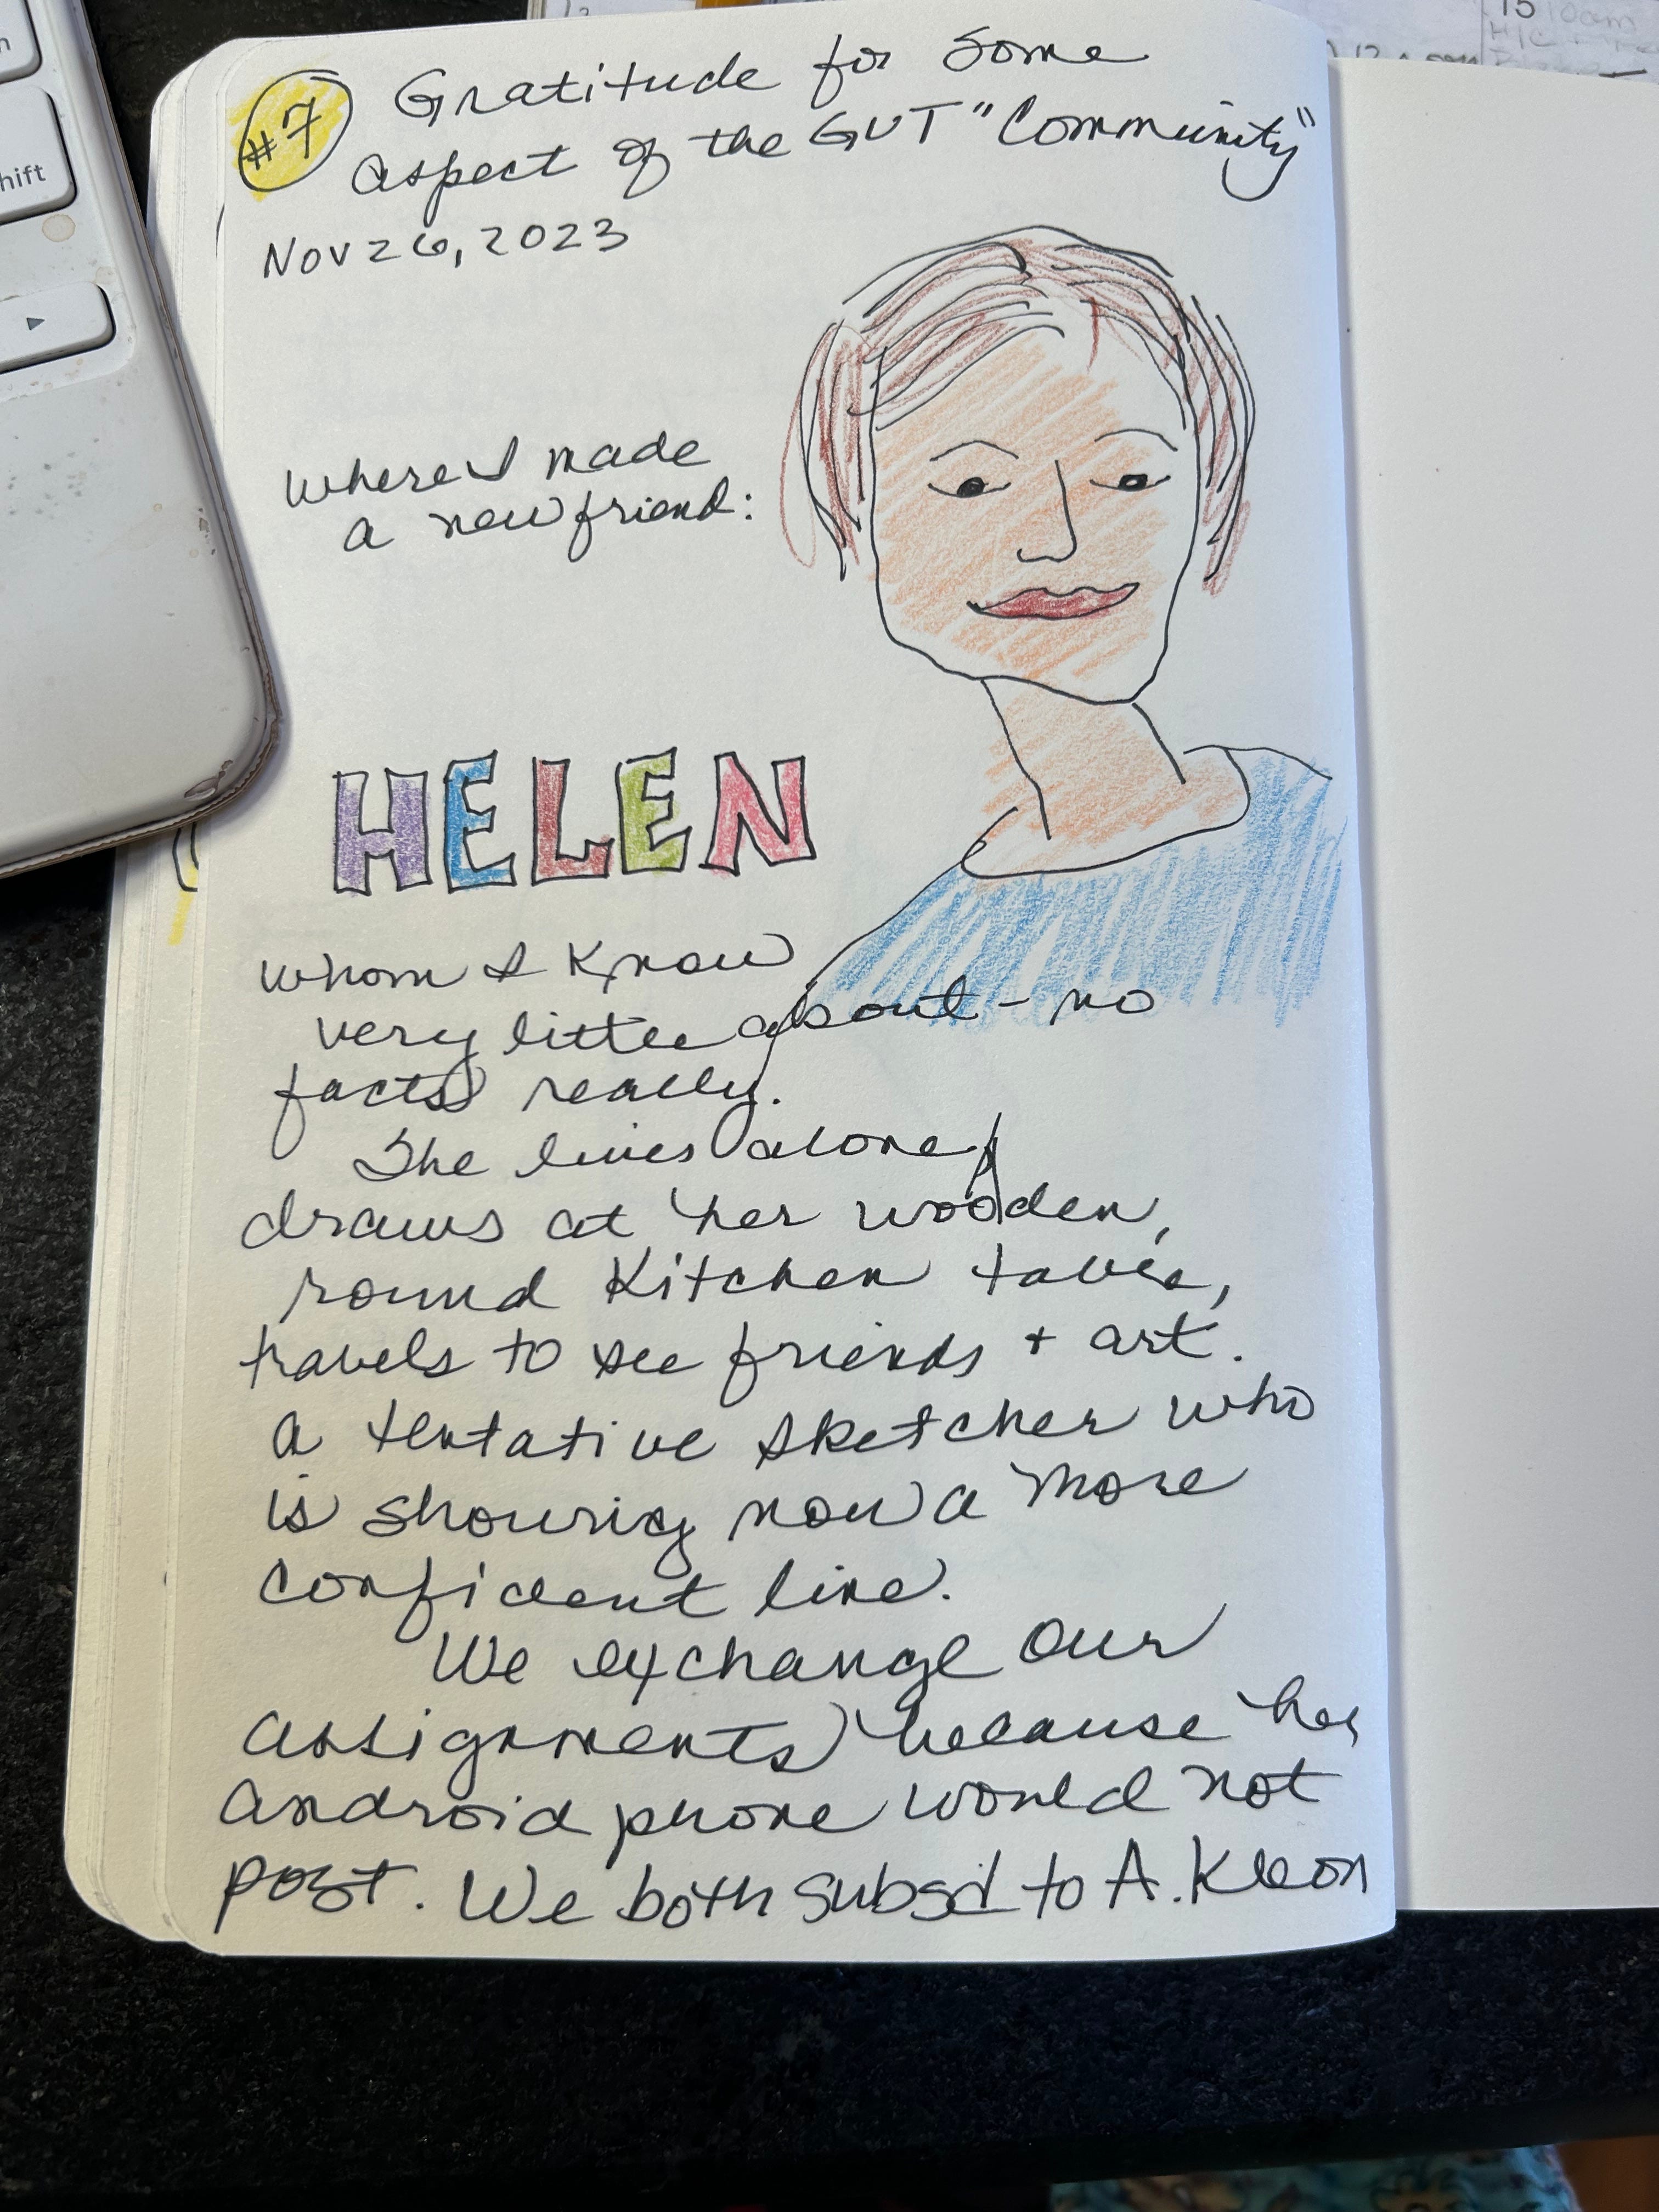 #7 Gratitude for Some
aspect of the GUT "Community"
Nov 26, 2023
where I made
a new friend:
HELEN
whom I know
very little about - no
facts really.
She lives alone,
draws at her wooden,
round Kitchen table,
travels to see friends + art.
a tentative sketcher who
is showing now a more
confident line.
We exchange our
assignments because her
android phone would not
post. We both subscd to A. Kleon
hift
15 10am
H/C